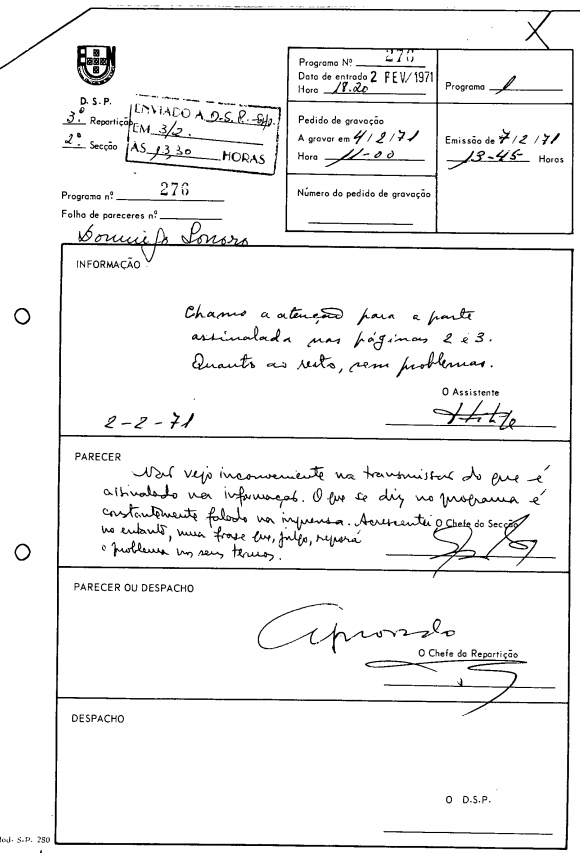 D. S. P.
3.º Repartição
2.º Secção
ENVIADO A D.S.P.
EM 3/2
ÀS 13,30 HORAS
Programa Nº 276
Data de entrada 2 FEV/1971
Hora 18.20
Programa 1
Pedido de gravação
A gravar em 4/2/71
Hora 11-00
Emissão de 7/2/71
13-45 Horas
Número do pedido de gravação
Programa nº 276
Folha de pareceres nº
Domingo Sonoro
INFORMAÇÃO
Chamo a atenção para a parte
assinalada nas páginas 2 e 3.
Quanto ao resto, sem problemas.
O Assistente
2-2-71
PARECER
Não vejo inconveniente na transmissão do que é
assinalado na informação. O que se diz no programa é
constantemente falado na imprensa. Acrescentei
O Chefe da Secção
no entanto, uma frase que, julgo, reporá
o problema nos seus termos.
PARECER OU DESPACHO
Aprovado
O Chefe da Repartição
DESPACHO
O D.S.P.
Mod. S.P. 280